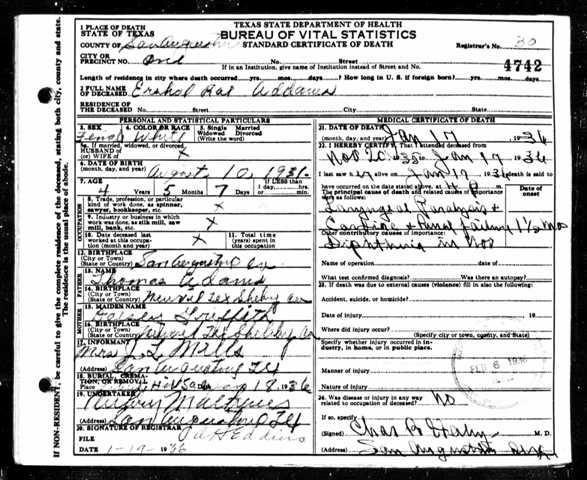 TEXAS STATE DEPARTMENT OF HEALTH
BUREAU OF VITAL STATISTICS
STANDARD CERTIFICATE OF DEATH
1 PLACE OF DEATH
STATE OF TEXAS
COUNTY OF San Augustine
Registrar's No. 30
CITY OR
PRECINCT NO. One No. Street
If in an Institution, give name of Institution instead of Street and No.
4742
Length of residence in city where death occurred years months days ? How long in U. S. if foreign born? years months days
2 FULL NAME
OF DECEASED Rae Addams
RESIDENCE OF
THE DECEASED No. Street City County State
PERSONAL AND STATISTICAL PARTICULARS
3. SEX 4 COLOR OR RACE 5 Single Married
Widowed Divorced
(Write the word)
White
5a. If married, widowed, divorced,
HUSBAND OF
(or) WIFE OF X
6. DATE OF BIRTH
(month, day, and year) August 10, 1931
7. AGE If LESS than
4 Years 5 Months 7 Days 1 day, hrs. min.
8. Trade, profession, or particular
kind of work done, as spinner,
sawyer, bookkeeper, etc. X
9. Industry or business in which
work was done, as silk mill, saw
mill, bank, etc. X
10. Date deceased last
worked at this occupation
(month and year) X
11. Total time
(years) spent in
this occupation
12. BIRTHPLACE
(City or Town)
(State or Country) San Augustine Co
13. NAME
Thomas Addams
FATHER
14. BIRTHPLACE
(City or Town)
(State or Country) Tex Shelby Co
15. MAIDEN NAME
MOTHER
16. BIRTHPLACE
(City or Town)
(State or Country) Shelby Co
17. INFORMANT
Mrs. L. L. Mills
(Address) San Augustine Tex
18. BURIAL, CREMATION, OR REMOVAL
Place Date 18 1936
19. UNDERTAKER
Mathews
(Address) San Augustine Tex
20. SIGNATURE OF REGISTRAR
FILE
DATE 1-19-1936
MEDICAL CERTIFICATE OF DEATH
21. DATE OF DEATH
(month, day, and year) Jan 17 1936
22. I HEREBY CERTIFY, That I attended deceased from
Nov 20 1935 to Jan 17 1936
I last saw her alive on Jan 17 1936 death is said to
have occurred on the date stated above, at M.
The principal cause of death and related causes of importance were as follows:
Date of onset
Laryngeal Paralysis &
Cardiac & Renal failure 1 1/2 Mo
Other contributory causes of importance:
Diphtheria in Nov
Name of operation date of
What test confirmed diagnosis? Was there an autopsy?
23. If death was due to external causes (violence) fill in also the following:
Accident, suicide, or homicide?
Date of injury 19
Where did injury occur?
(Specify city or town, county, and State)
Specify whether injury occurred in industry, in home, or in public place.
Manner of injury
Nature of injury
FEB 6 1936
24. Was disease or injury in any way
related to occupation of deceased? No
If so, specify
(Signed) Chas M. D.
(Address) San Augustine Tex
IF NON-RESIDENT, be careful to give the complete residence of the deceased, stating both city, county and state.
The residence is the usual place of abode.